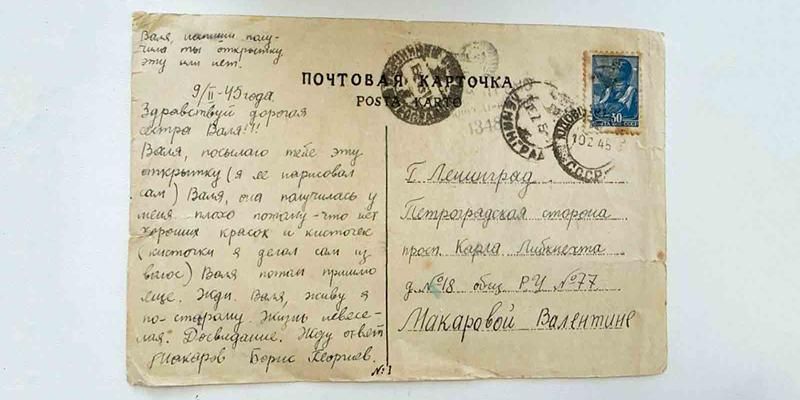 Валя, напиши полу-
чила ты открытку
эту или нет.
9/II-45 года.
Здравствуй дорогая
сестра Валя!!!
Валя, посылаю тебе эту
открытку (я ее нарисовал
сам) Валя, она получилась у
меня плохо потому-что нет
хороших красок и кисточек
(кисточки я делал сам из
волос) Валя потом пришлю
еще. Жди. Валя, живу я
по-старому жизнь невесе-
лая. Досвидание. Жду ответ
Макаров Борис Георгиев.
№1
ПОЧТОВАЯ КАРТОЧКА
POŜTA KARTO
1348
ЛЕНИНГРАД
10 2 45
СССР
30
ПОЧТА СССР
Г. Ленинград.
Петроградская сторона
просп. Карла Либкнехта
д. №18 общ. РУ №77
Макаровой Валентине